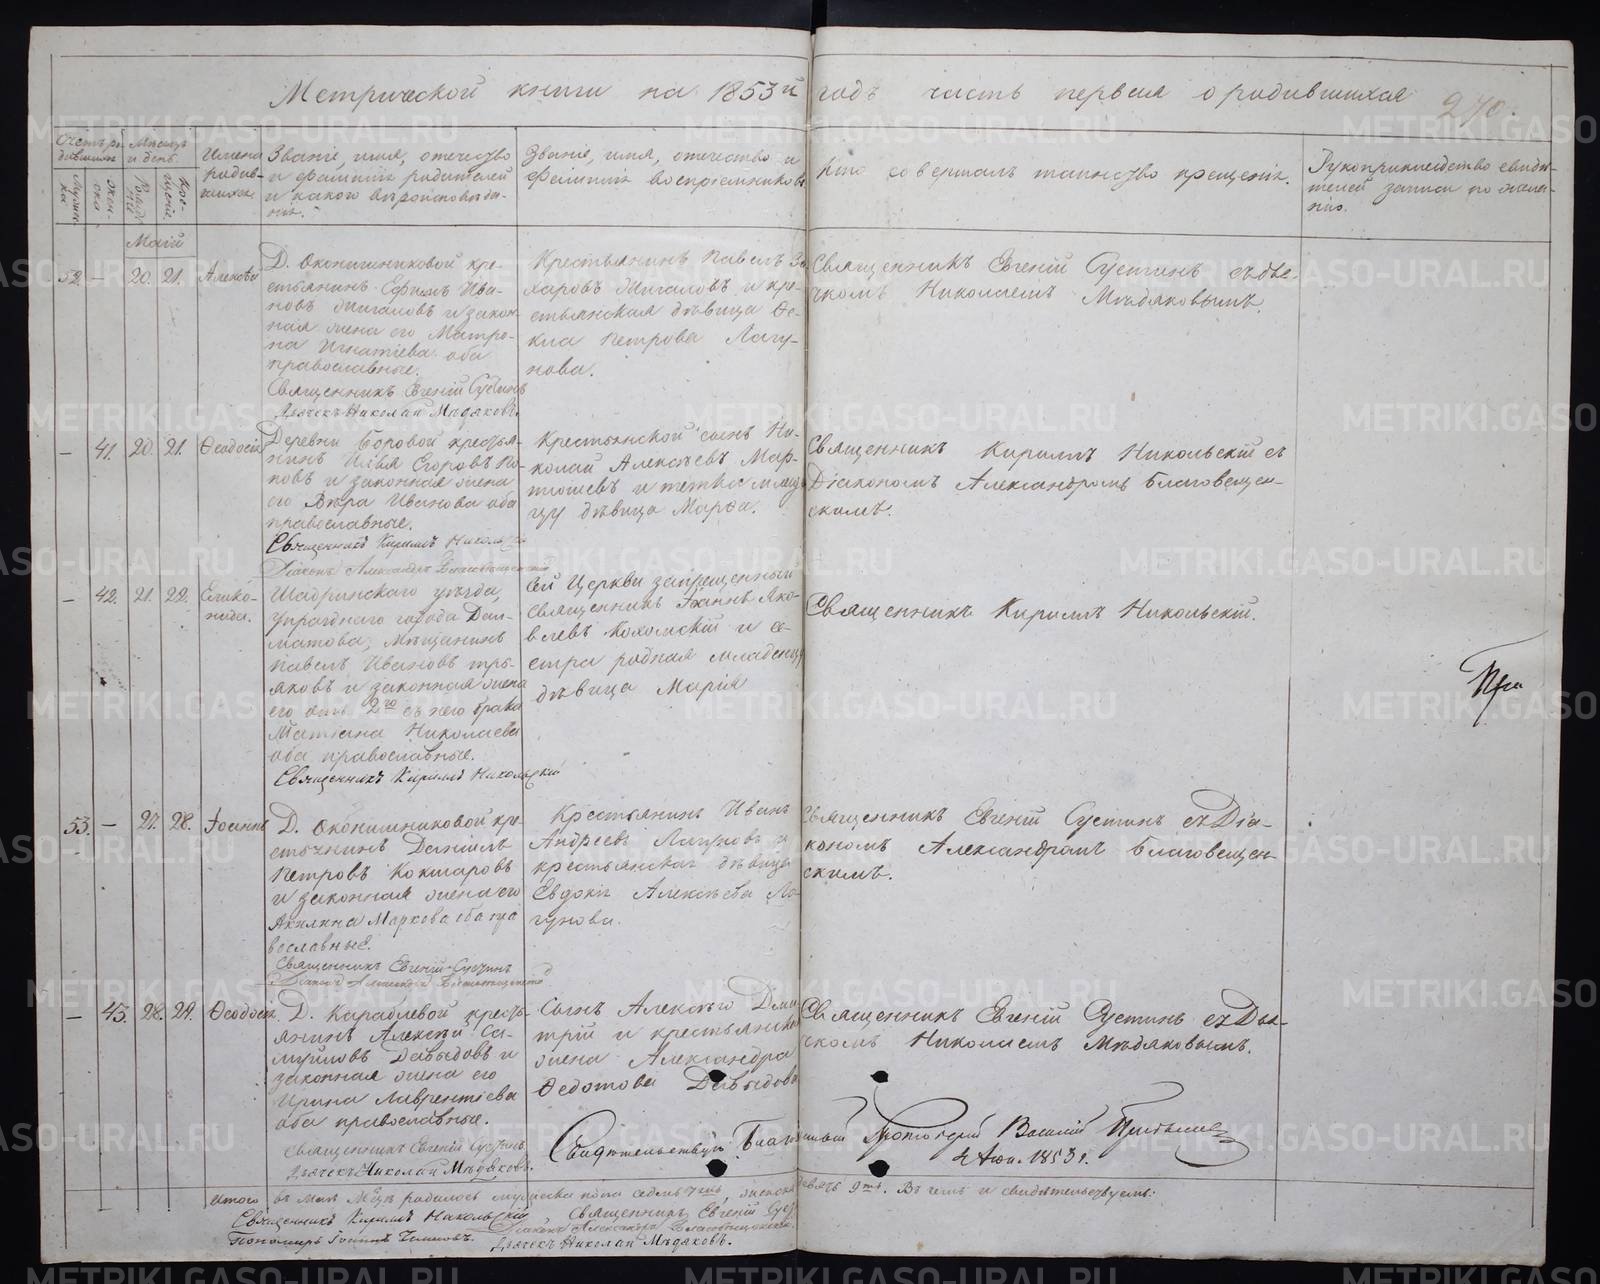 Метрической книги на 1853й годъ часть первая о родившихся 270.
Счетъ ро-
дившихся
Мужеска
Женско
Месяцъ
и день.
Рождения
Крещенiя.
Имена
родив-
шихся
Званiе, имя, отечество
и фамилiя родителей
и какого вѣроисповѣда-
нiя.
Званiе, имя, отечество и
фамилiя воспрiемниковъ
Кто совершалъ таинство крещенiя.
Рукоприкладство свидѣ-
телей записи по жела-
нiю.
Маiй
52. – 20. 21. Алексѣй
Д. Оконишниковой кре-
стьянинъ Ефимъ Ива-
новъ Мигаловъ и закон-
ная жена его Матро-
на Игнатiева оба
православные.
Священникъ Евгенiй Сустинъ
Дьячекъ Николай Мѣдяковъ.
Крестьянинъ Павелъ За-
харовъ Мигаловъ и кре-
стьянская дѣвица Ѳе-
кла Петрова Лагу-
нова.
Священникъ Евгенiй Сустинъ съ дья-
чкомъ Николаемъ Мѣдяковымъ.
– 41. 20. 21. Ѳеодосiя
Деревни Боровой крестья-
нинъ Илья Егоровъ По-
повъ и законная жена
его Вѣра Иванова оба
православные.
Священникъ Кириллъ Никольскiй
Дiаконъ Александръ Благовещенскiй
Крестьянской сынъ Ни-
колай Алексѣевъ Мар-
тюшевъ и тетка младен-
цу дѣвица Марѳа.
Священникъ Кириллъ Никольскiй съ
Дiакономъ Александромъ Благовещен-
скимъ.
– 42. 21. 22. Елико-
нида.
Шадринскаго уѣзда,
упразднаго города Дал-
матова, Мѣщанинъ
Павелъ Ивановъ Тре-
яковъ и законная жена
его отъ 2го съ нею брака
Татiана Николаева
оба православные.
Священникъ Кириллъ Никольскiй
Сей Церкви запрещенный
священникъ Iоаннъ Яко-
влевъ Холомскiй и се-
стра родная младенцу
дѣвица Марiя
Священникъ Кириллъ Никольскiй.
При
53. – 27. 28. Iоаннъ
Д. Оконишниковой кре-
стьянинъ Данiилъ
Петровъ Кокшаровъ
и законная жена его
Акилина Маркова оба пра
вославные.
Священникъ Евгенiй Сустинъ
Дiаконъ Александръ Благовещенскiй
Крестьянинъ Иванъ
Андреевъ Лагуновъ и
крестьянская дѣвица
Евдокiя Алексѣева Ла-
гунова.
Священникъ Евгенiй Сустинъ съ Дiа-
кономъ Александромъ Благовещен-
скимъ.
– 43. 28. 29. Ѳеодосiя
Д. Караблевой кресть-
янинъ Алексѣй Са-
муиловъ Давыдовъ и
законная жена его
Ирина Лаврентiева
оба православные.
Священникъ Евгенiй Сустинъ
Дьячекъ Николай Мѣдяковъ.
Сынъ Алексѣя Дми-
трiй и крестьянская
жена Александра
Ѳедотова Давыдова
Священникъ Евгенiй Сустинъ съ Дья-
чкомъ Николаемъ Мѣдяковымъ.
Свидѣтельствуй Благочинный Протоiерей Василiй
1853 г.
Итого въ маѣ Мцѣ родилось мужеска пола седмь 7мь, женска девять 9ть. Въ чемъ и свидѣтельствуемъ:
Священникъ Кириллъ Никольскiй Священникъ Евгенiй Сустинъ
Дiаконъ Александръ Благовещенскiй.
Пономарь Iоаннъ
Дьячекъ Николай Мѣдяковъ.
METRIKI.GASO-URAL.RU